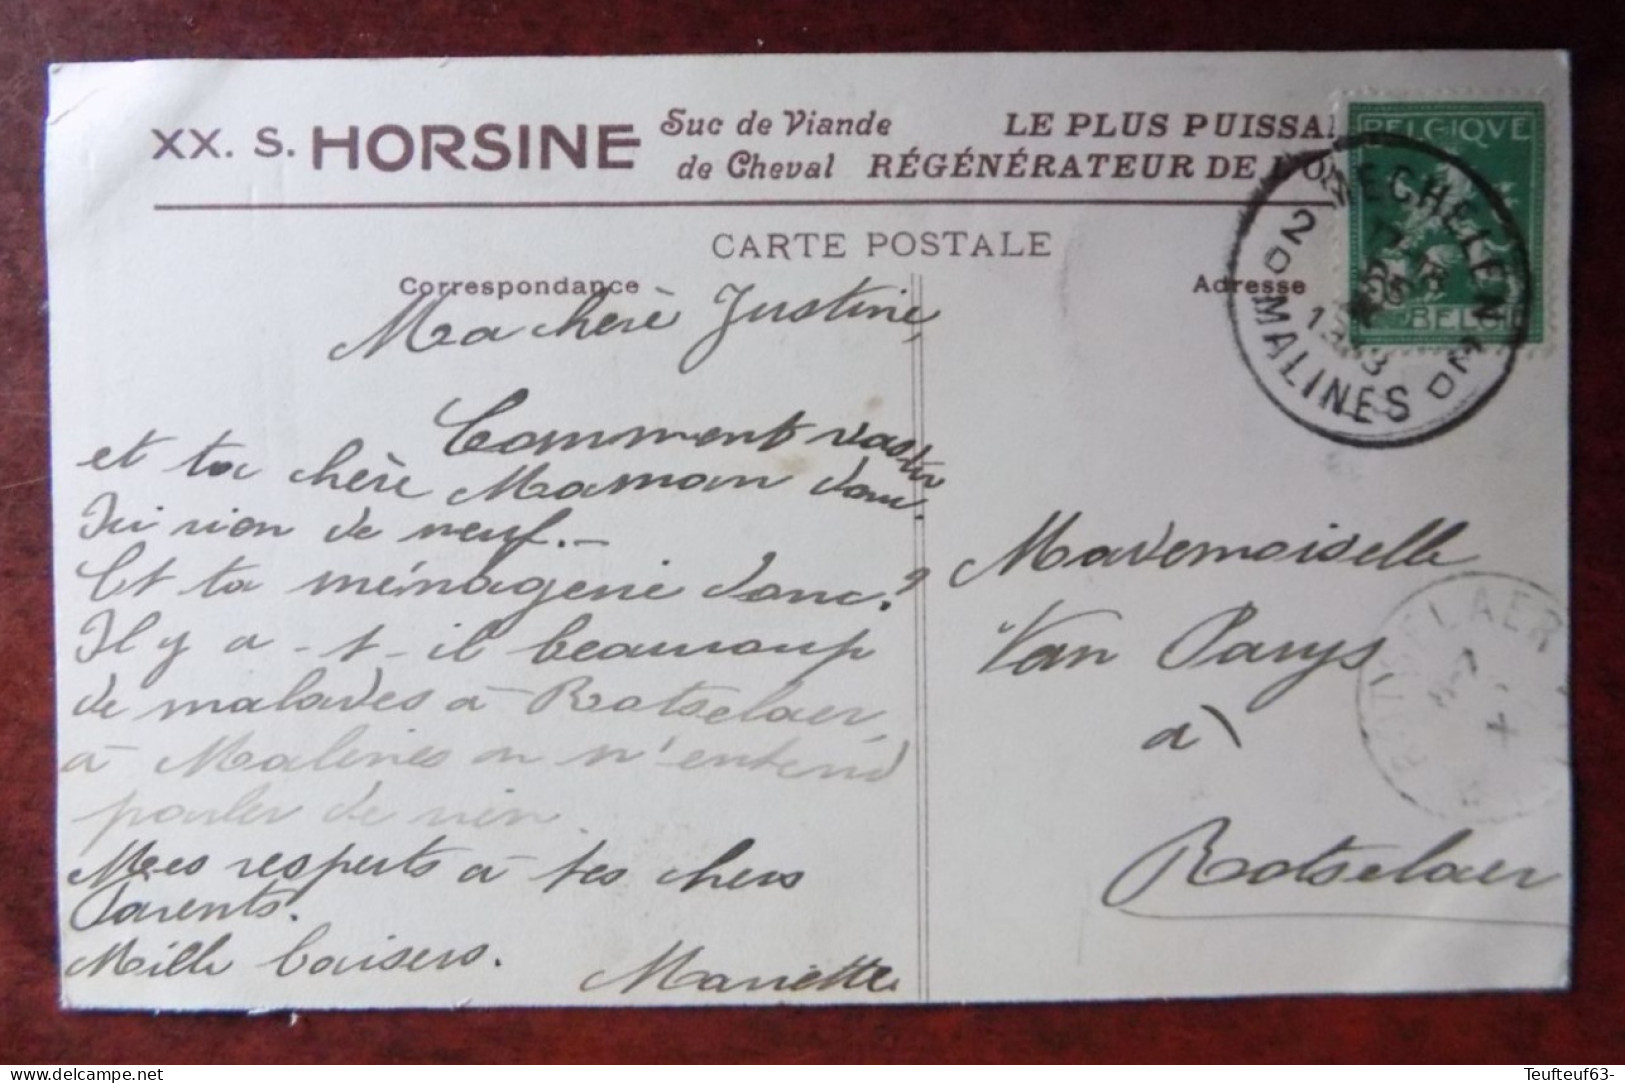 XX. S. HORSINE Suc de Viande de Cheval
LE PLUS PUISSA
RÉGÉNÉRATEUR DE L'O
CARTE POSTALE
Correspondance
Adresse
BELGIQVE
BELGI
MECHELEN
2 2
MALINES
Ma chère Justine,
Comment vas tu
et ta chère Maman donc.
Ici rien de neuf. –
Et ta ménagerie donc?
Il y a-t-il beaucoup
de malades à Rotselaer,
à Malines on n'entend
parler de rien.
Mes respects à tes chers
Parents.
Mille baisers. Mariette
Mademoiselle
Van Parys
à
Rotselaer
ROTSELAER
Teufteuf63-